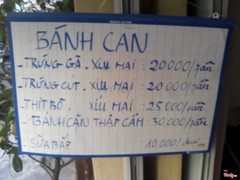 BÁNH CAN
- TRỨNG GÀ . XÍU MẠI : 20.000/phần
- TRỨNG CÚT . XÍU MẠI : 20.000/phần
- THỊT BÒ . XÍU MẠI : 25.000/phần
- BÁNH CĂN THẬP CẨM : 30.000/phần
- SỮA BẮP : 10.000/